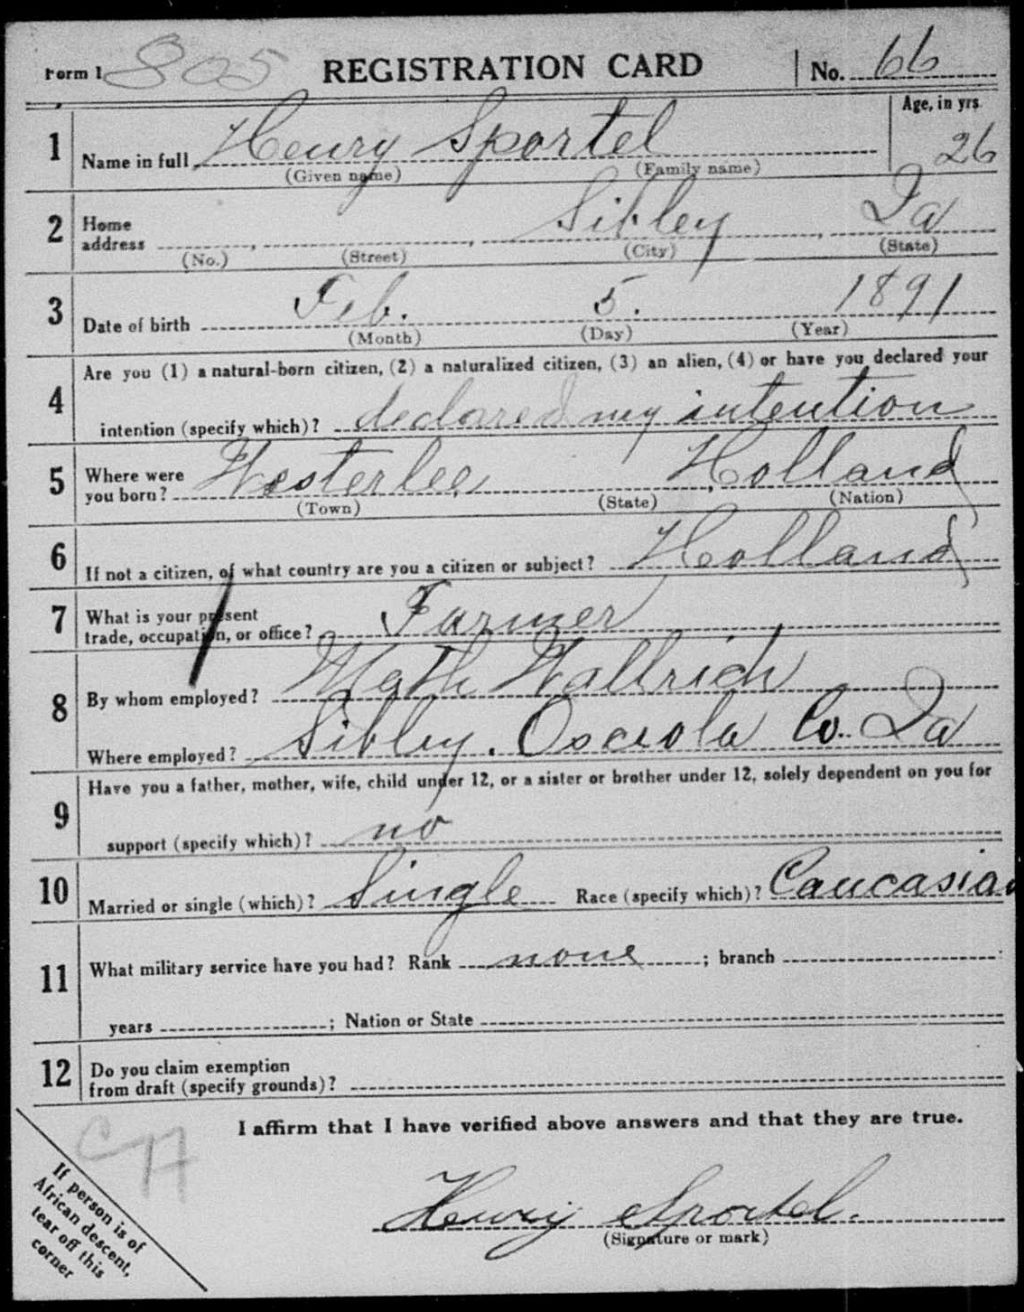 Form 1 805 REGISTRATION CARD No. 66
Age, in yrs.
1 Name in full Henry Sportel 26
(Given name) (Family name)
2 Home address Sibley Ia
(No.) (Street) (City) (State)
3 Date of birth Feb. 5. 1891
(Month) (Day) (Year)
4 Are you (1) a natural-born citizen, (2) a naturalized citizen, (3) an alien, (4) or have you declared your
intention (specify which)? declared my intention
5 Where were you born? Westerlee Holland
(Town) (State) (Nation)
6 If not a citizen, of what country are you a citizen or subject? Holland
7 What is your present
trade, occupation, or office? Farmer
8 By whom employed? Math Wallrich
Where employed? Sibley. Osceola Co. Ia
9 Have you a father, mother, wife, child under 12, or a sister or brother under 12, solely dependent on you for
support (specify which)? no
10 Married or single (which)? Single Race (specify which)? Caucasian
11 What military service have you had? Rank none ; branch
years ; Nation or State
12 Do you claim exemption
from draft (specify grounds)?
I affirm that I have verified above answers and that they are true.
Henry Sportel.
(Signature or mark)
If person is of
African descent,
tear off this
corner